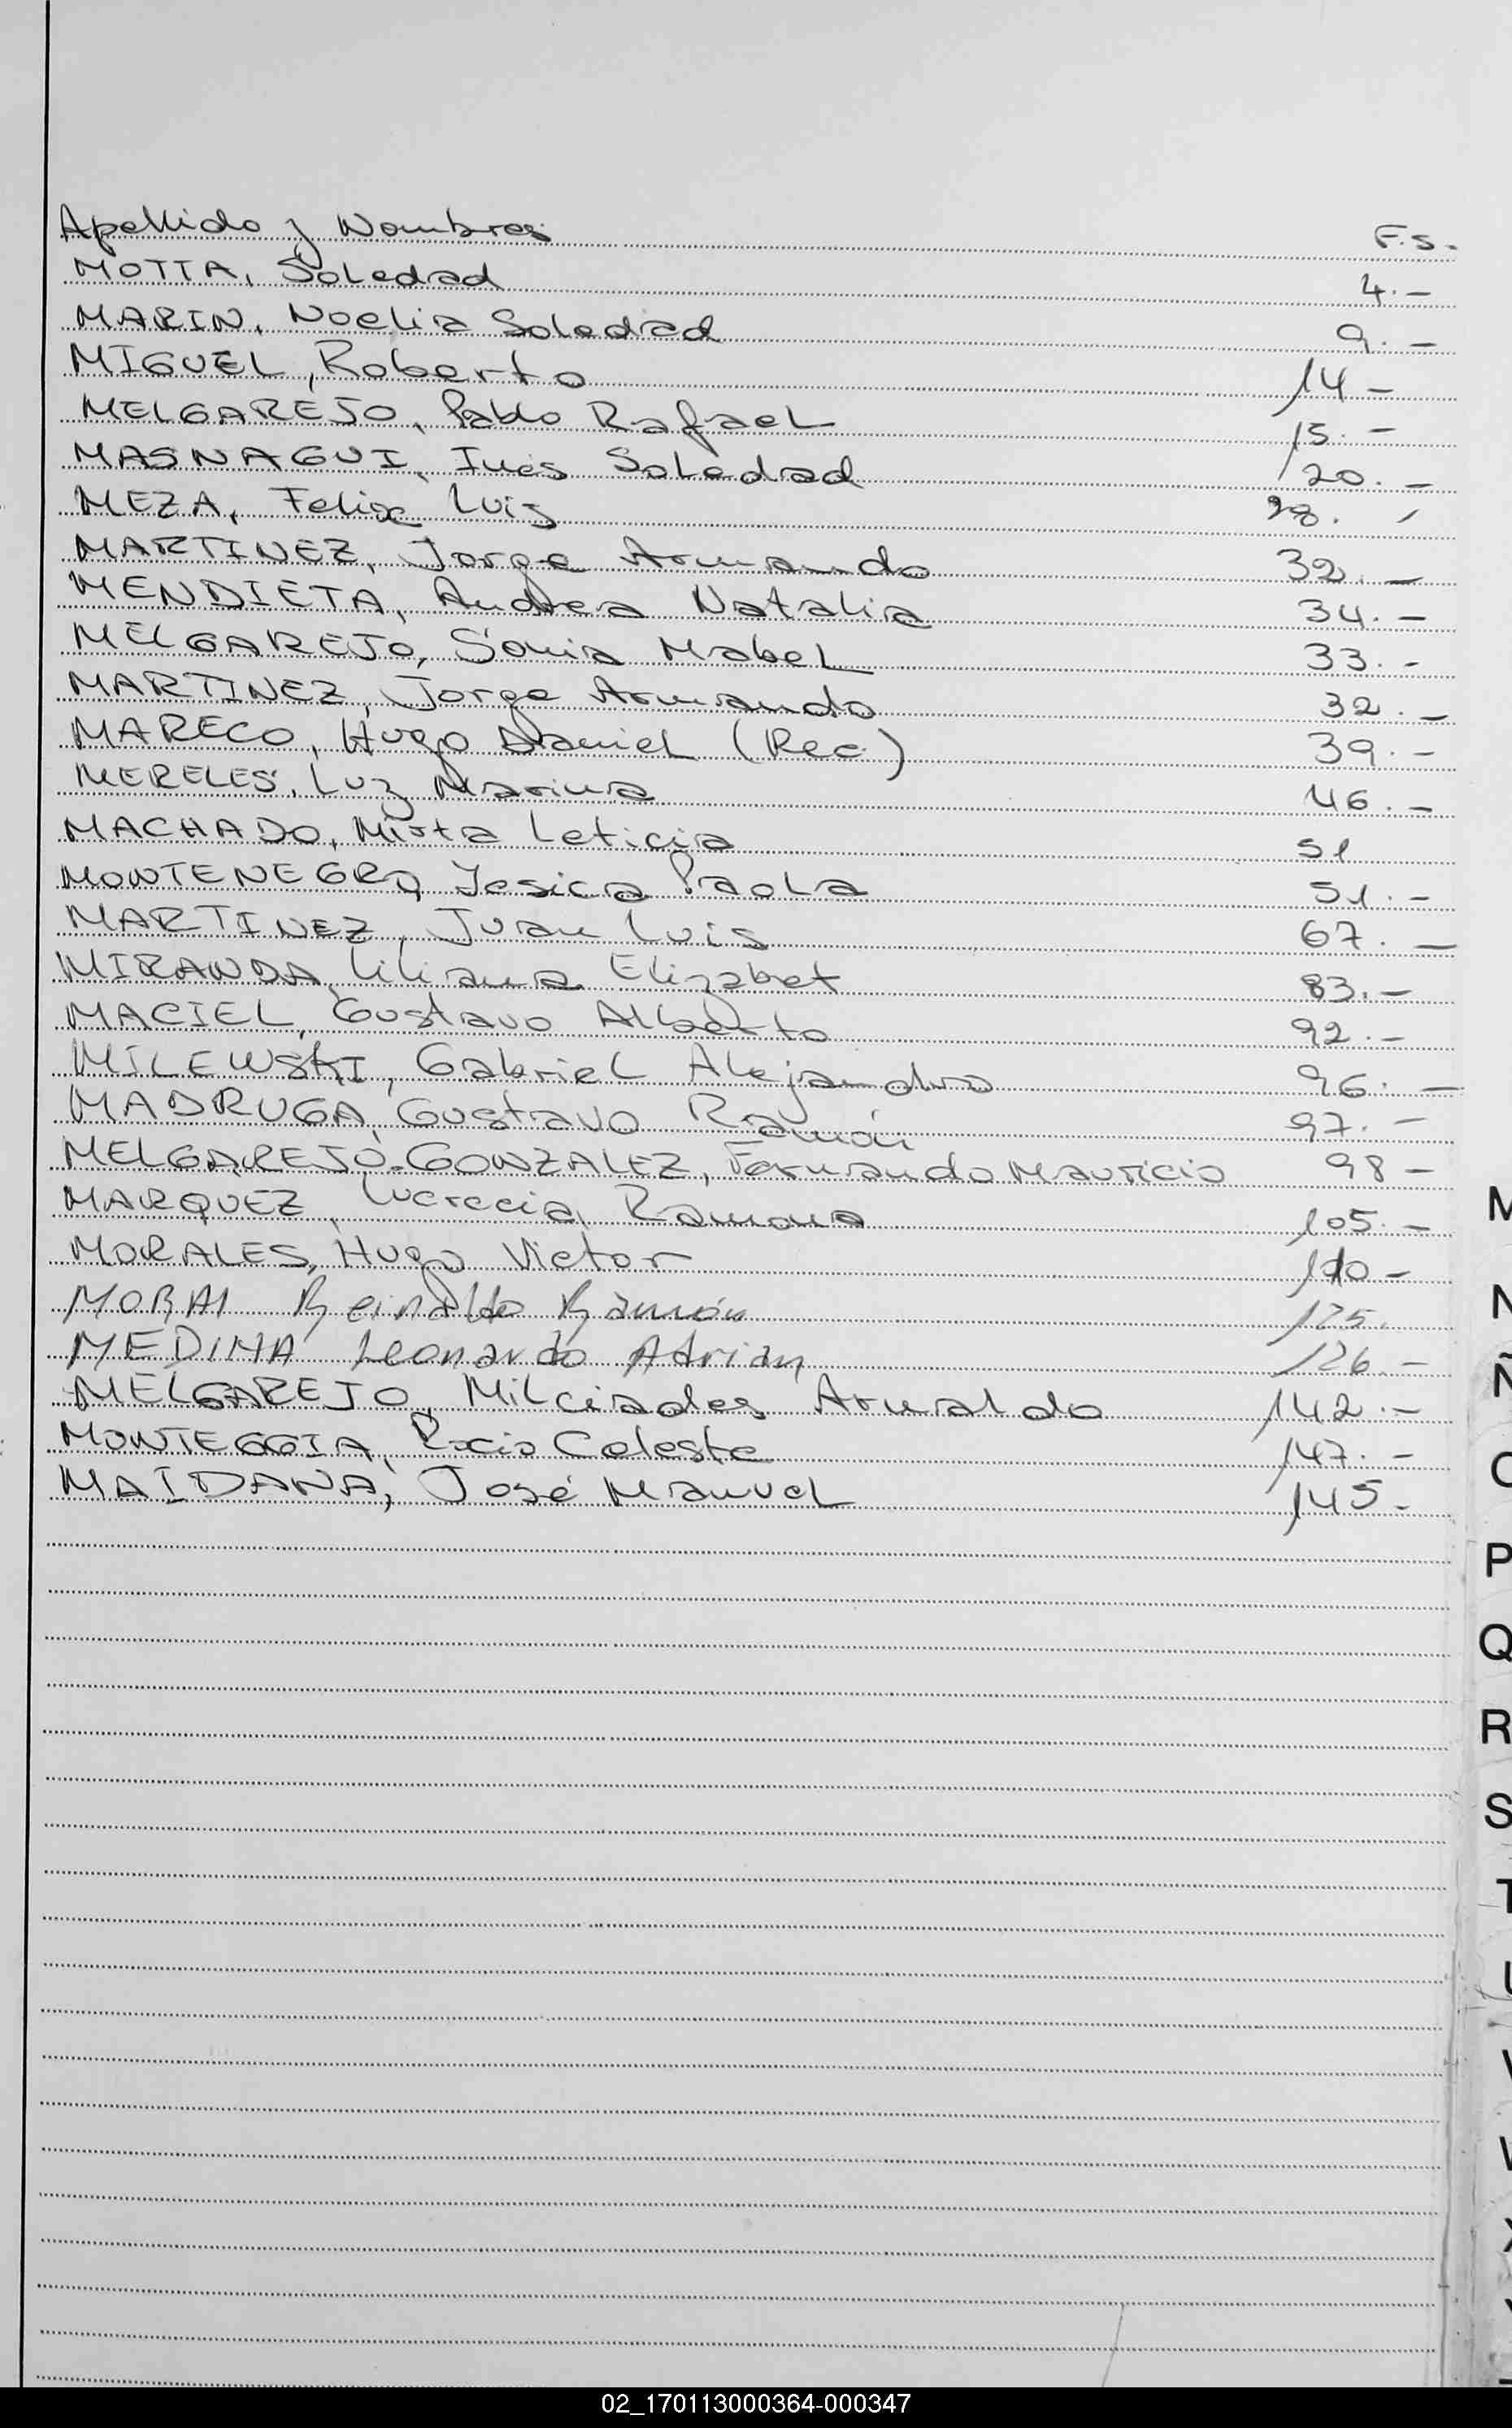 Apellido y Nombres F.S.
MOTTA, Soledad 4.-
MARIN, Noelia Soledad 9.-
MIGUEL, Roberto 14-
MELGAREJO, Pablo Rafael 15.-
MASNAGUI, Inés Soledad 20.-
MEZA, Felix Luis 28.-
MARTINEZ, Jorge Armando 32.-
MENDIETA, Andrea Natalia 34.-
MELGAREJO, Sonia Mabel 33.-
MARTINEZ, Jorge Armando 32.-
MARECO, Hugo Daniel (Rec.) 39.-
MERELES, Luz Marina 46.-
MACHADO, Mirta Leticia 51
MONTENEGRO, Yesica Paola 51.-
MARTINEZ, Juan Luis 67.-
MIRANDA, Liliana Elizabet 83.-
MACIEL, Gustavo Alberto 92.-
MILEWSKI, Gabriel Alejandro 96.-
MADRUGA, Gustavo Ramón 97.-
MELGAREJO-GONZALEZ, Fernando Mauricio 98-
MARQUEZ, Lucrecia Ramona 105.-
MORALES, Hugo Victor 110-
Reinaldo Ramón 125.
MEDINA Leonardo Adrian 126.-
MELGAREJO, Milciades Arnaldo 142.-
MONTEGGIA, Rocio Celeste 147.-
MAIDANA, José Manuel 145-
M
N
Ñ
O
P
Q
R
S
T
U
V
W
X
Y
02_170113000364-000347